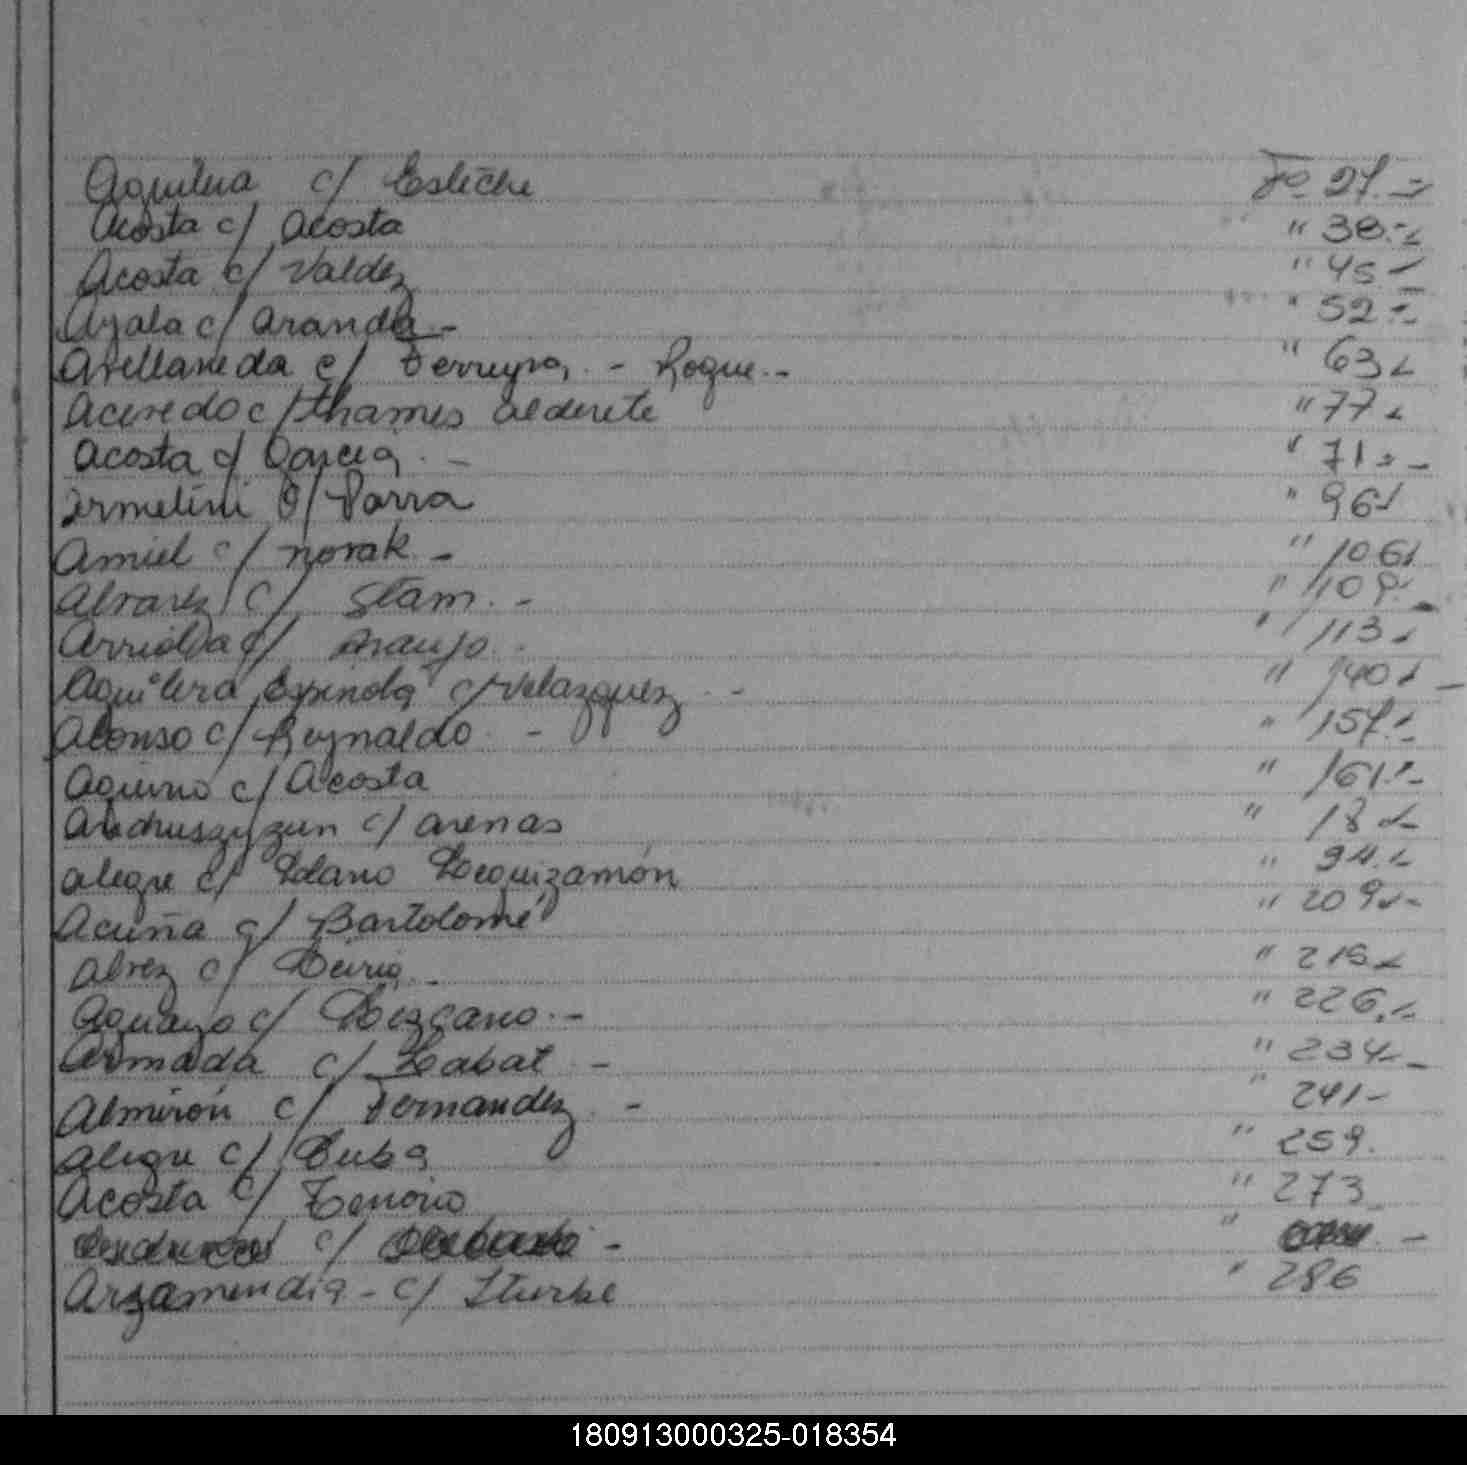 Aguilera c/ Esteche Fº 27.-
Acosta c/ Acosta " 38.-
Acosta c/ Valdez " 45.-
Ayala c/ Aranda.- " 52.-
Avellaneda c/ Ferreyra.- Roque.- " 63.-
Acevedo c/ Thames Alderete " 77.-
Acosta c/ Garcia.- " 71.-
Armelini c/ Parra " 96.-
Amiel c/ Novak.- " 106.-
Alvarez c/ Stam.- " 109.-
Arriola c/ Araujo.- " 113.-
Aguilera Espinola c/ Velazquez.- " 140.-
Alonso c/ Reynaldo.- " 157.-
Aquino c/ Acosta " 161.-
c/ Arenas " 18
Alegre c/ Solano Leguizamón " 94.-
Acuña c/ Bartolomé " 209.-
Alvez c/ " 215.-
Aguayo c/ Lezcano.- " 226.-
Armada c/ Labat.- " 234.-
Almirón c/ Fernandez.- " 241-
Alegre c/ Cuba " 259.
Acosta c/ Tenorio " 273
c/ - "
Arzamendia - c/ Iturbe " 286
180913000325-018354